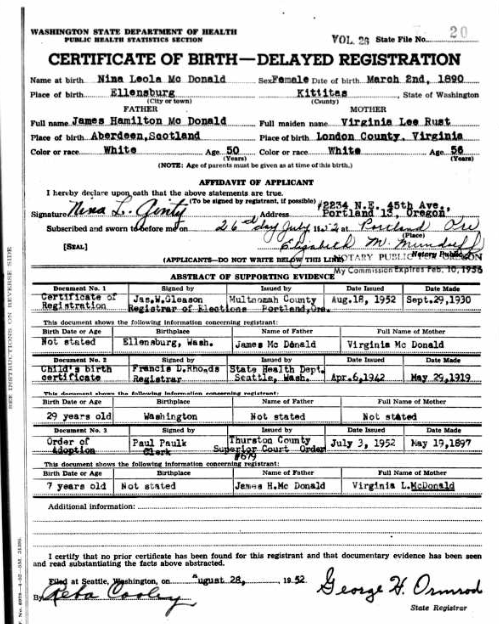 20
WASHINGTON STATE DEPARTMENT OF HEALTH
PUBLIC HEALTH STATISTICS SECTION
VOL. 28 State File No.
CERTIFICATE OF BIRTH—DELAYED REGISTRATION
Name at birth Nina Leola Mc Donald Sex Female Date of birth March 2nd, 1890
Place of birth Ellensburg Kittitas , State of Washington
(City or town) (County)
FATHER MOTHER
Full name James Hamilton Mc Donald Full maiden name Virginia Lee Rust
Place of birth Aberdeen, Scotland Place of birth London County, Virginia
Color or race White Age 50 Color or race White Age 56
(Years) (Years)
(NOTE: Age of parents must be given as at time of this birth.)
AFFIDAVIT OF APPLICANT
I hereby declare upon oath that the above statements are true.
(To be signed by registrant, if possible) #2234 N.E. 45th Ave.,
Signature Nina L. Gonty Address Portland 13, Oregon.
Subscribed and sworn to before me on 26th day July 1952 at Portland Ore
(Place)
[SEAL] Elizabeth M. Mundorff
(APPLICANTS—DO NOT WRITE BELOW THIS LINE) NOTARY PUBLIC FOR OREGON
Notary Public
My Commission Expires Feb. 10, 1956
ABSTRACT OF SUPPORTING EVIDENCE
Document No. 1 Signed by Issued by Date Issued Date Made
Certificate of Registration Jas. W. Gleason Registrar of Elections Multnomah County Portland, Ore. Aug. 18, 1952 Sept. 29, 1930
This document shows the following information concerning registrant:
Birth Date or Age Birthplace Name of Father Full Name of Mother
Not stated Ellensburg, Wash. James Mc Donald Virginia Mc Donald
Document No. 2 Signed by Issued by Date Issued Date Made
Child's birth certificate Francis D. Rhoads Registrar State Health Dept. Seattle, Wash. Apr. 6, 1942 May 29, 1919
This document shows the following information concerning registrant:
Birth Date or Age Birthplace Name of Father Full Name of Mother
29 years old Washington Not stated Not stated
Document No. 3 Signed by Issued by Date Issued Date Made
Order of Adoption Paul Paulk Clerk Thurston County Superior Court Order #679 July 3, 1952 May 19, 1897
This document shows the following information concerning registrant:
Birth Date or Age Birthplace Name of Father Full Name of Mother
7 years old Not stated James H. Mc Donald Virginia L. McDonald
Additional information:
I certify that no prior certificate has been found for this registrant and that documentary evidence has been seen
and read substantiating the facts above abstracted.
Filed at Seattle, Washington, on August 28, 1952.
By Reba Cooley George H. Ormrod
State Registrar
SEE INSTRUCTIONS ON REVERSE SIDE